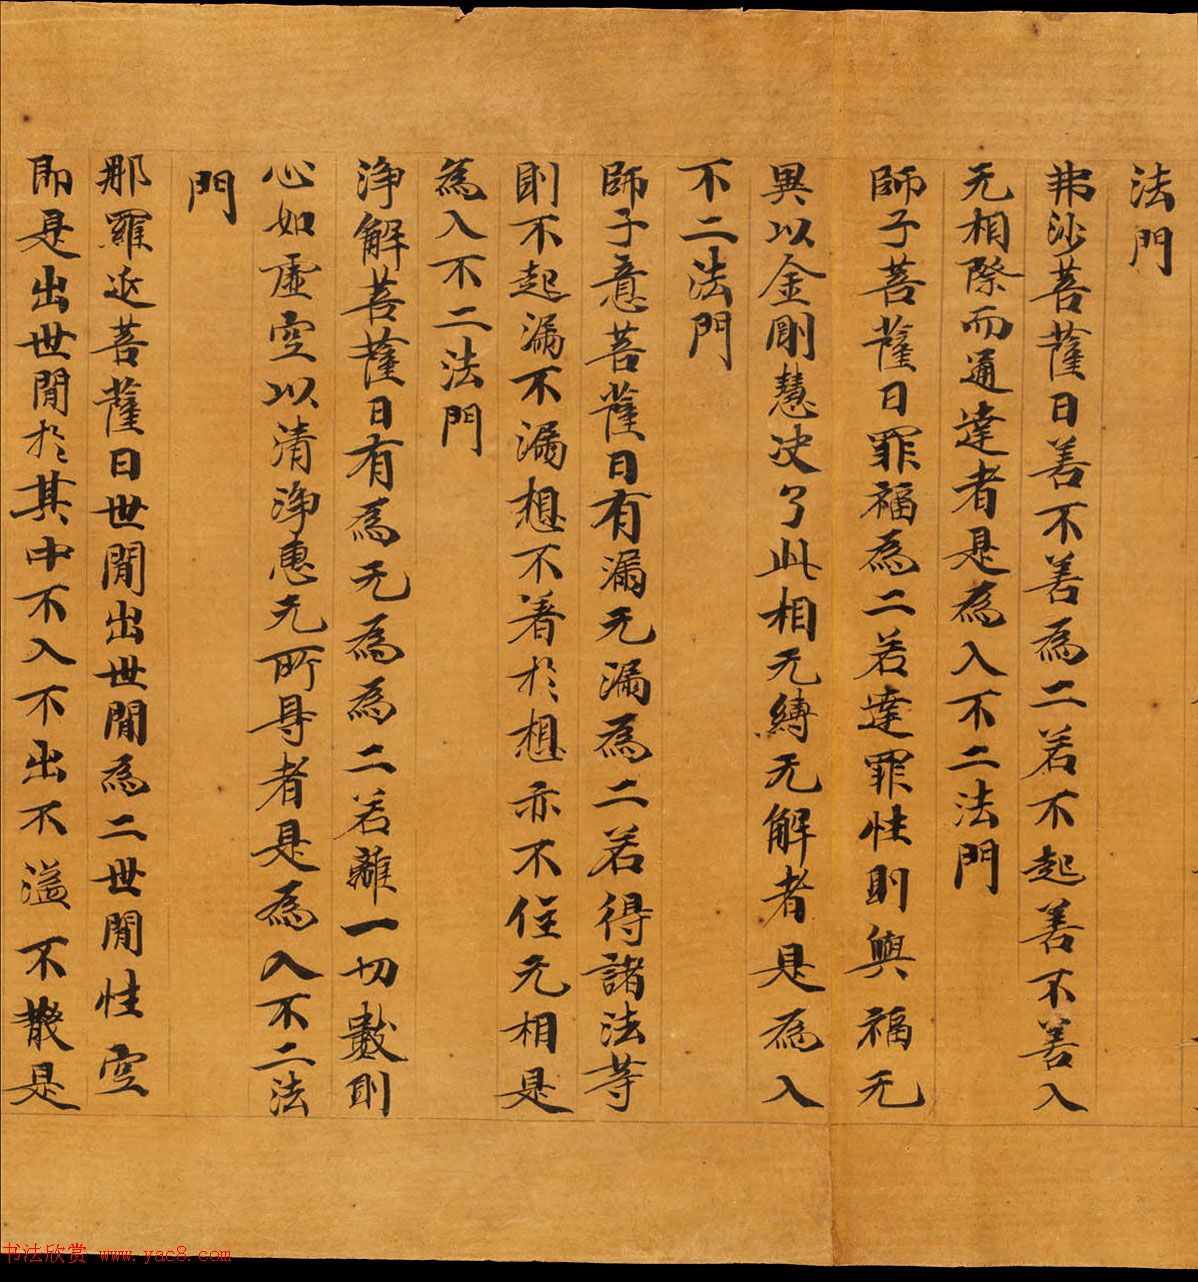 法門
弗沙菩薩曰善不善為二若不起善不善入
无相際而通達者是為入不二法門
師子菩薩曰罪福為二若達罪性則與福无
異以金剛慧決了此相无縛无解者是為入
不二法門
師子意菩薩曰有漏无漏為二若得諸法等
則不起漏不漏想不著於想亦不住无相是
為入不二法門
淨解菩薩曰有為无為為二若離一切數則
心如虛空以清淨惠无所㝵者是為入不二法
門
那羅延菩薩曰世閒出世閒為二世閒性空
即是出世閒於其中不入不出不溢不散是
书法欣赏 www.yac8.com